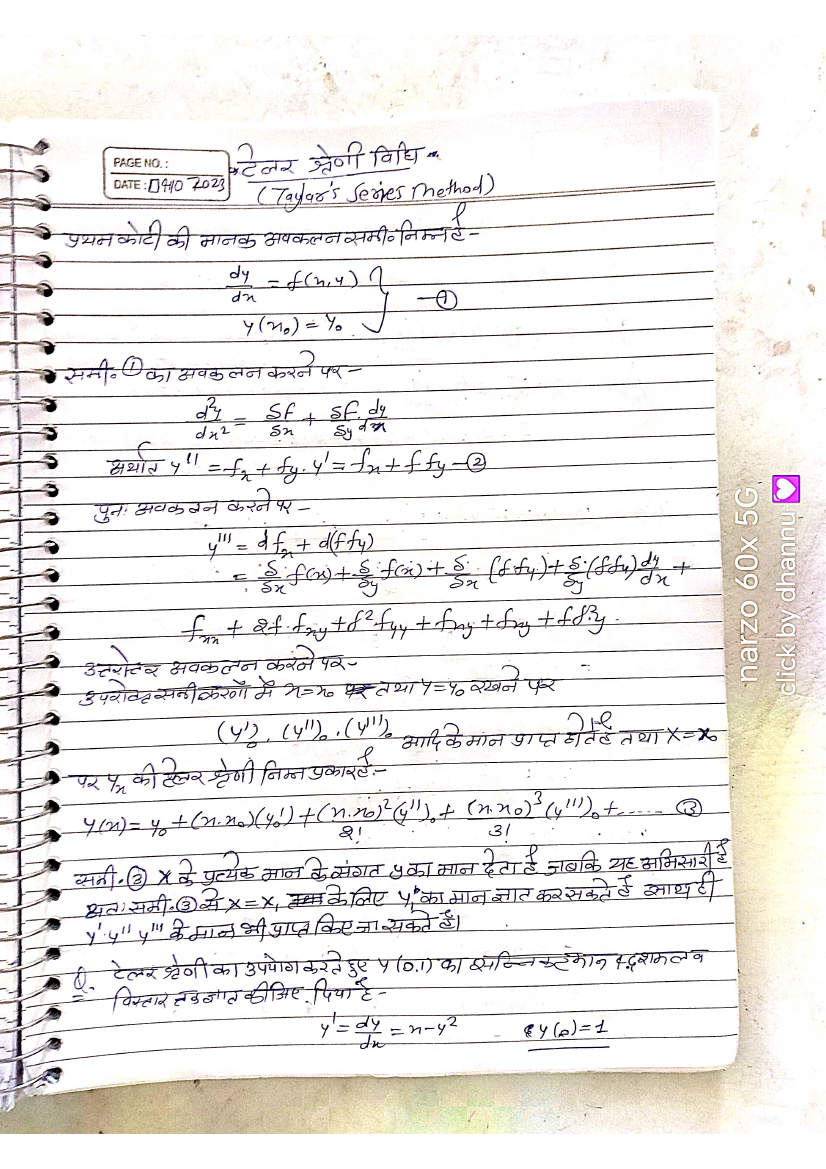 PAGE NO.:
DATE: 04/10 2023
टेलर श्रेणी विधि
(Taylar's Series Method)
प्रथम कोटी की मानक अवकलन समी० निम्न है -
dy/dx = f(x, y)
y(x₀) = y₀ } —①
समी० ① का अवकलन करने पर -
d²y/dx² = δf/δx + δf/δy · dy/dx
अर्थात y'' = fₓ + fy · y' = fₓ + f fy —②
पुनः अवकलन करने पर -
y''' = d fₓ + d(f fy)
= δ/δx f(x) + δ/δy f(x) + δ/δx (f fy) + δ/δy (f fy) dy/dx +
fₓₓ + 2f · fₓy + f² fyy + fxy + fxy + ff²y .
उत्तरोत्तर अवकलन करने पर -
उपरोक्त समीकरणों में x = x₀ तथा y = y₀ रखने पर
(y')₀ , (y'')₀ , (y''')₀ आदि के मान प्राप्त होते है तथा X = x₀
पर yₓ की टेलर श्रेणी निम्न प्रकार है :-
y(x) = y₀ + (x-x₀)(y₀') + (x-x₀)²/2! (y'')₀ + (x-x₀)³/3! (y''')₀ + ...... ③
समी. ③ X के प्रत्येक मान के संगत y का मान देता है जबकि यह अभिसारी है
अतः समी. ③ से X = x, के लिए y, का मान ज्ञात कर सकते है साथ ही
y' y'' y''' के मान भी प्राप्त किए जा सकते है।
Q. टेलर श्रेणी का उपयोग करते हुए y (0.1) का मान 4 दशमलव
विस्तार तक ज्ञात कीजिए. दिया है -
y' = dy/dx = x - y² y(0) = 1
narzo 60x 5G
click by dhannu